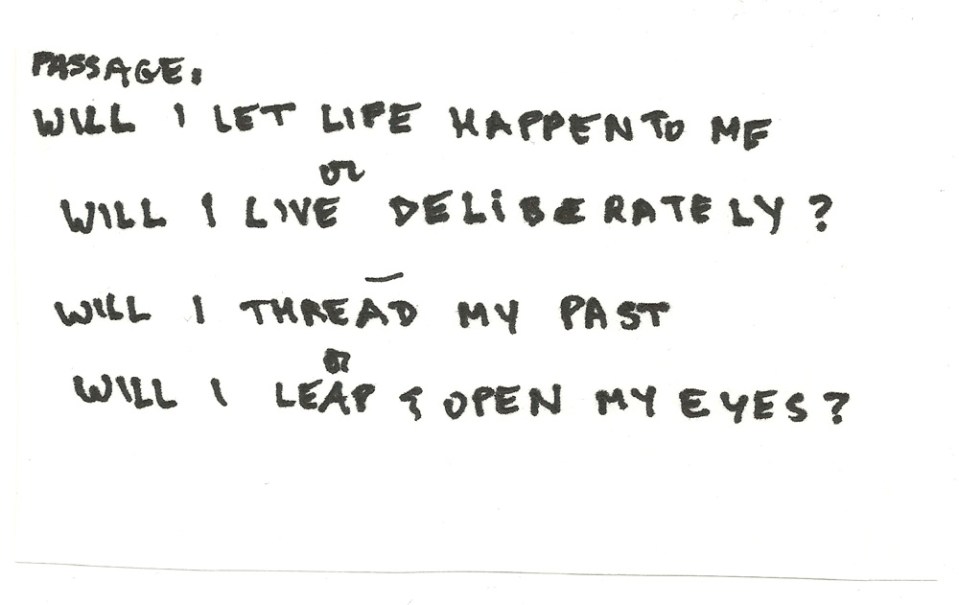 PASSAGE:
WILL I LET LIFE HAPPEN TO ME
or
WILL I LIVE DELiBERATELY?
WILL I THREAD MY PAST
or
WILL I LEAP & OPEN MY EYES?